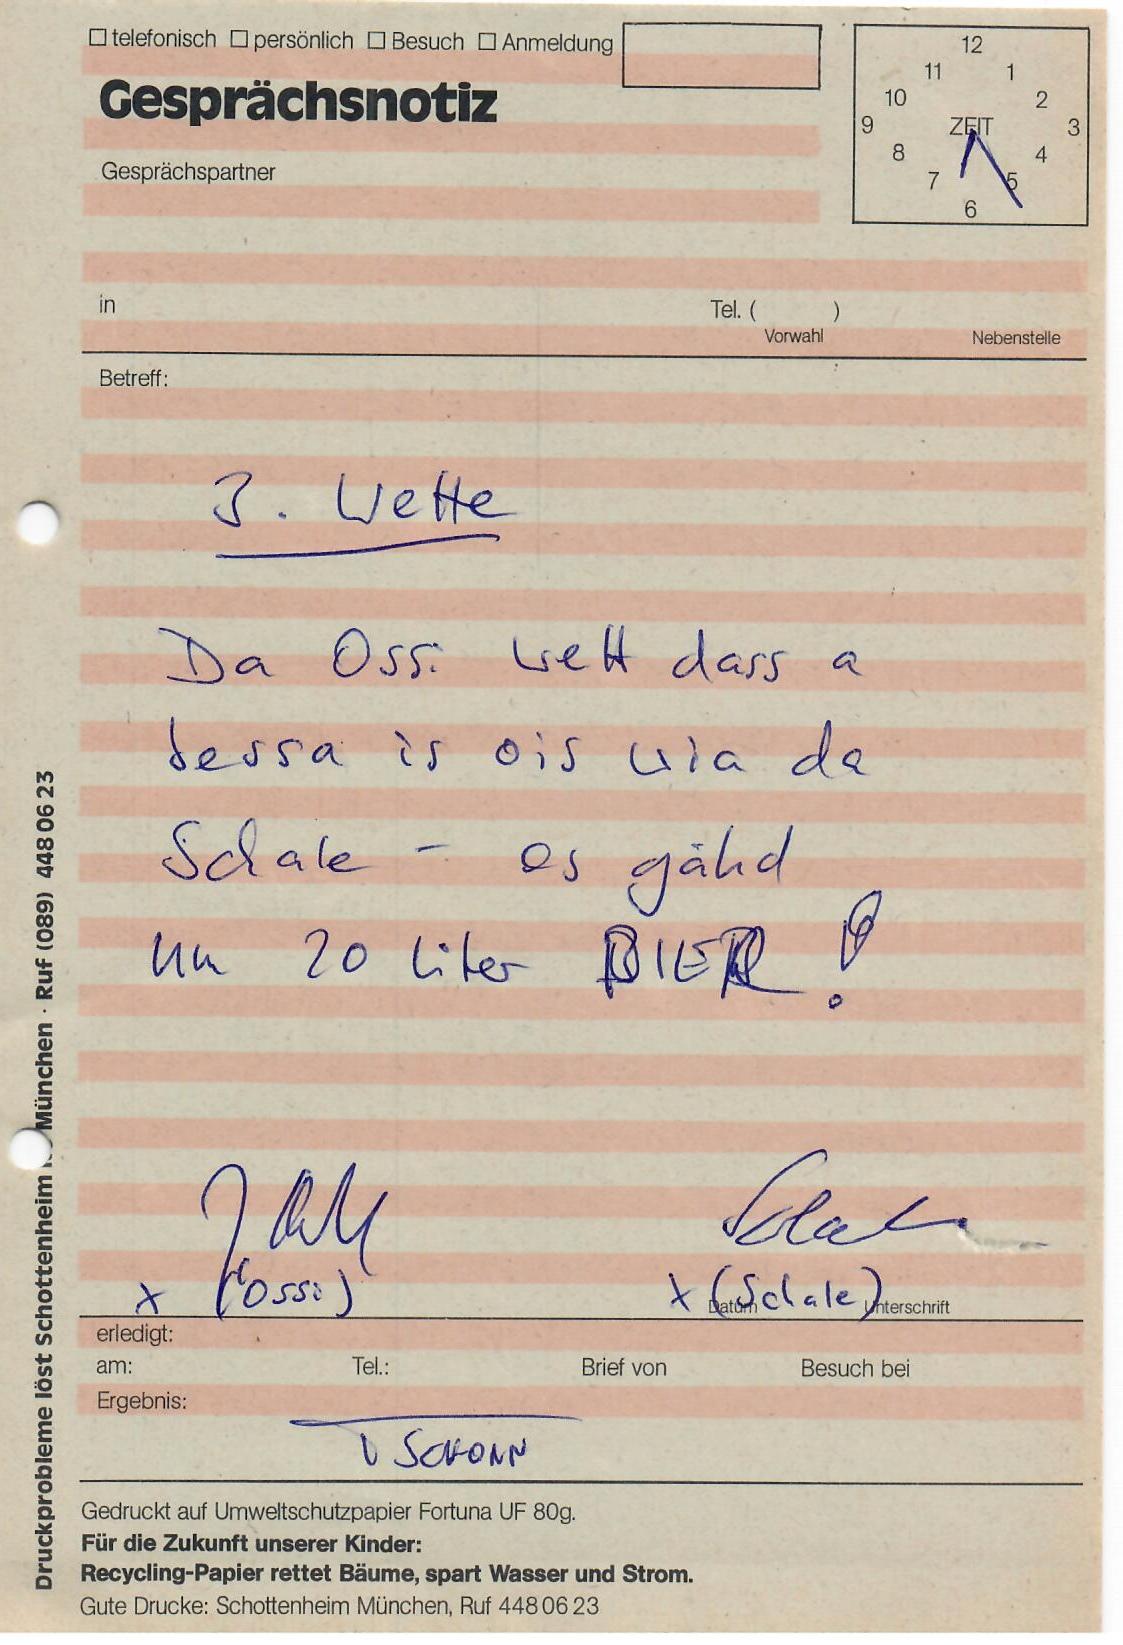 ☐ telefonisch ☐ persönlich ☐ Besuch ☐ Anmeldung
Gesprächsnotiz
Gesprächspartner
12
11 1
10 2
9 ZEIT 3
8 4
7 5
6
in Tel. ( )
Vorwahl Nebenstelle
Betreff:
3. Wette
Da Ossi wett dass a
bessa is ois wia da
Schale - es gähd
um 20 Liter BIER!
x (Ossi) x (Schale)
Datum Unterschrift
erledigt:
am: Tel.: Brief von Besuch bei
Ergebnis:
Gedruckt auf Umweltschutzpapier Fortuna UF 80g.
Für die Zukunft unserer Kinder:
Recycling-Papier rettet Bäume, spart Wasser und Strom.
Gute Drucke: Schottenheim München, Ruf 448 06 23
Druckprobleme löst Schottenheim München · Ruf (089) 448 06 23